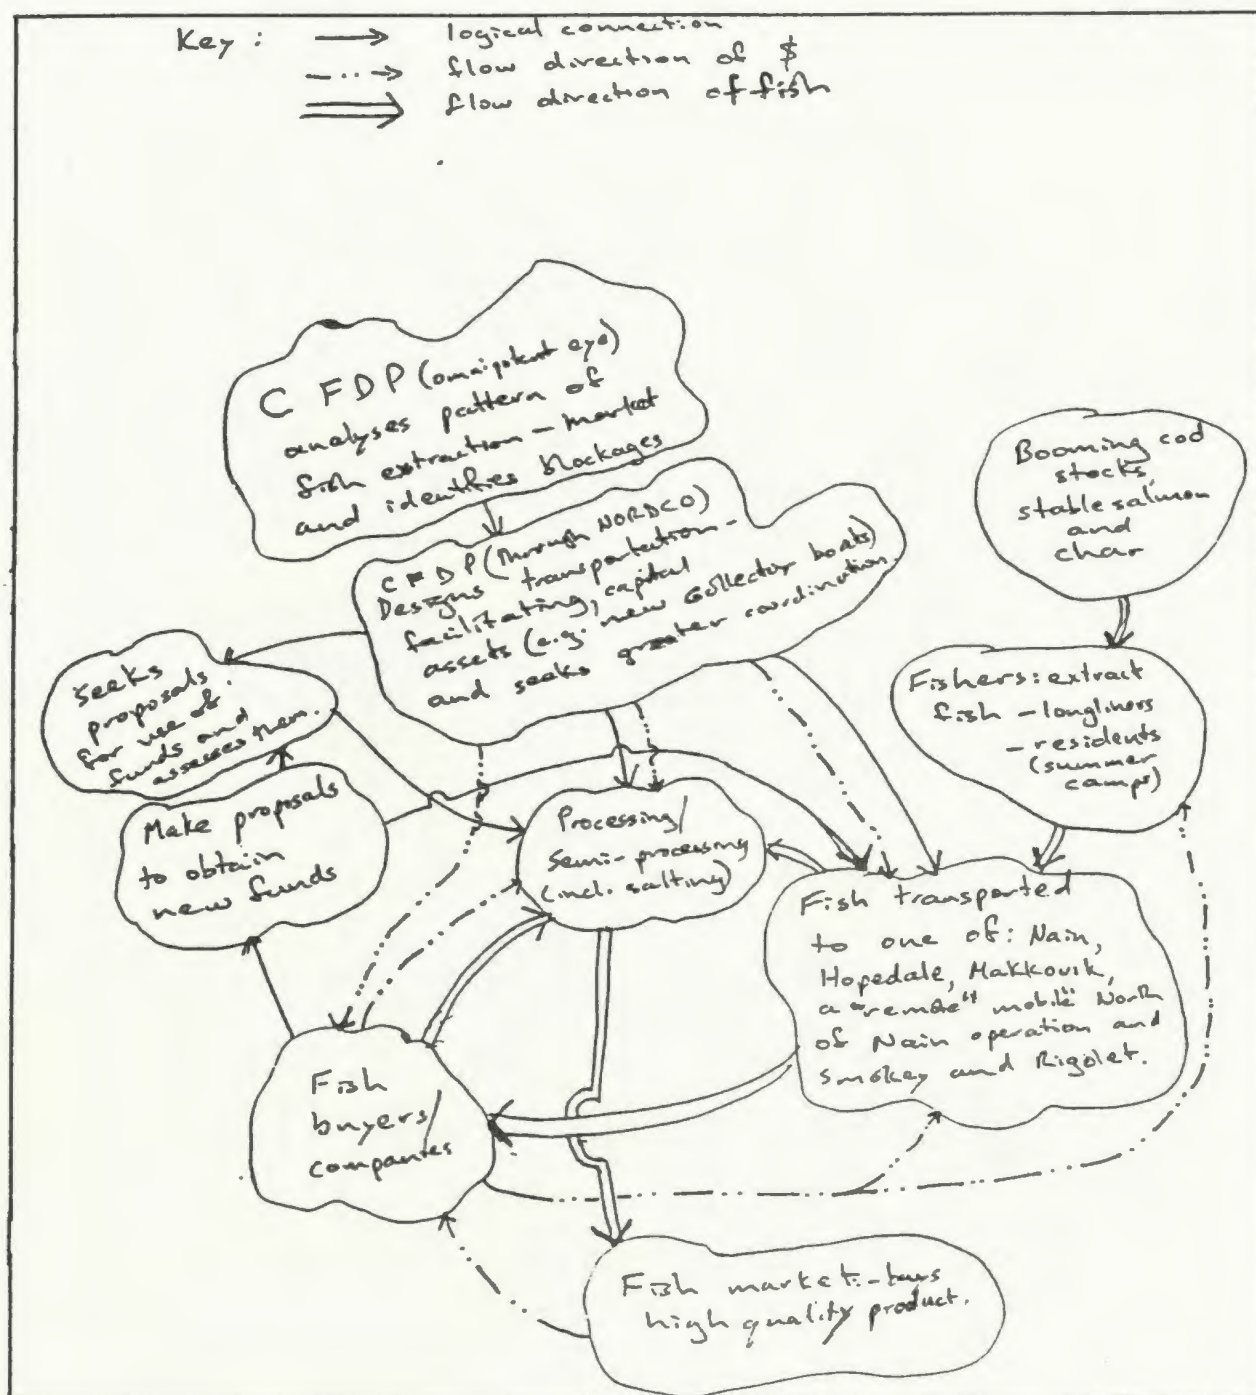 Key :
logical connection
flow direction of $
flow direction of fish
CFDP (omnipotent eye)
analyses pattern of
fish extraction - market
and identifies blockages
CFDP (through NORDCO)
Designs transportation -
facilitating, capital
assets (e.g. new collector boats)
and seeks greater coordination.
Booming cod
stocks,
stable salmon
and
char
Fishers: extract
fish - longliners
- residents
(summer
camps)
seeks
proposals
for use of
funds and
assesses them.
Make proposals
to obtain
new funds
Processing/
semi-processing
(incl. salting)
Fish transported
to one of: Nain,
Hopedale, Makkovik,
a "remote" "mobile" North
of Nain operation and
Smokey and Rigolet.
Fish
buyers/
companies
Fish market: - buys
high quality product.